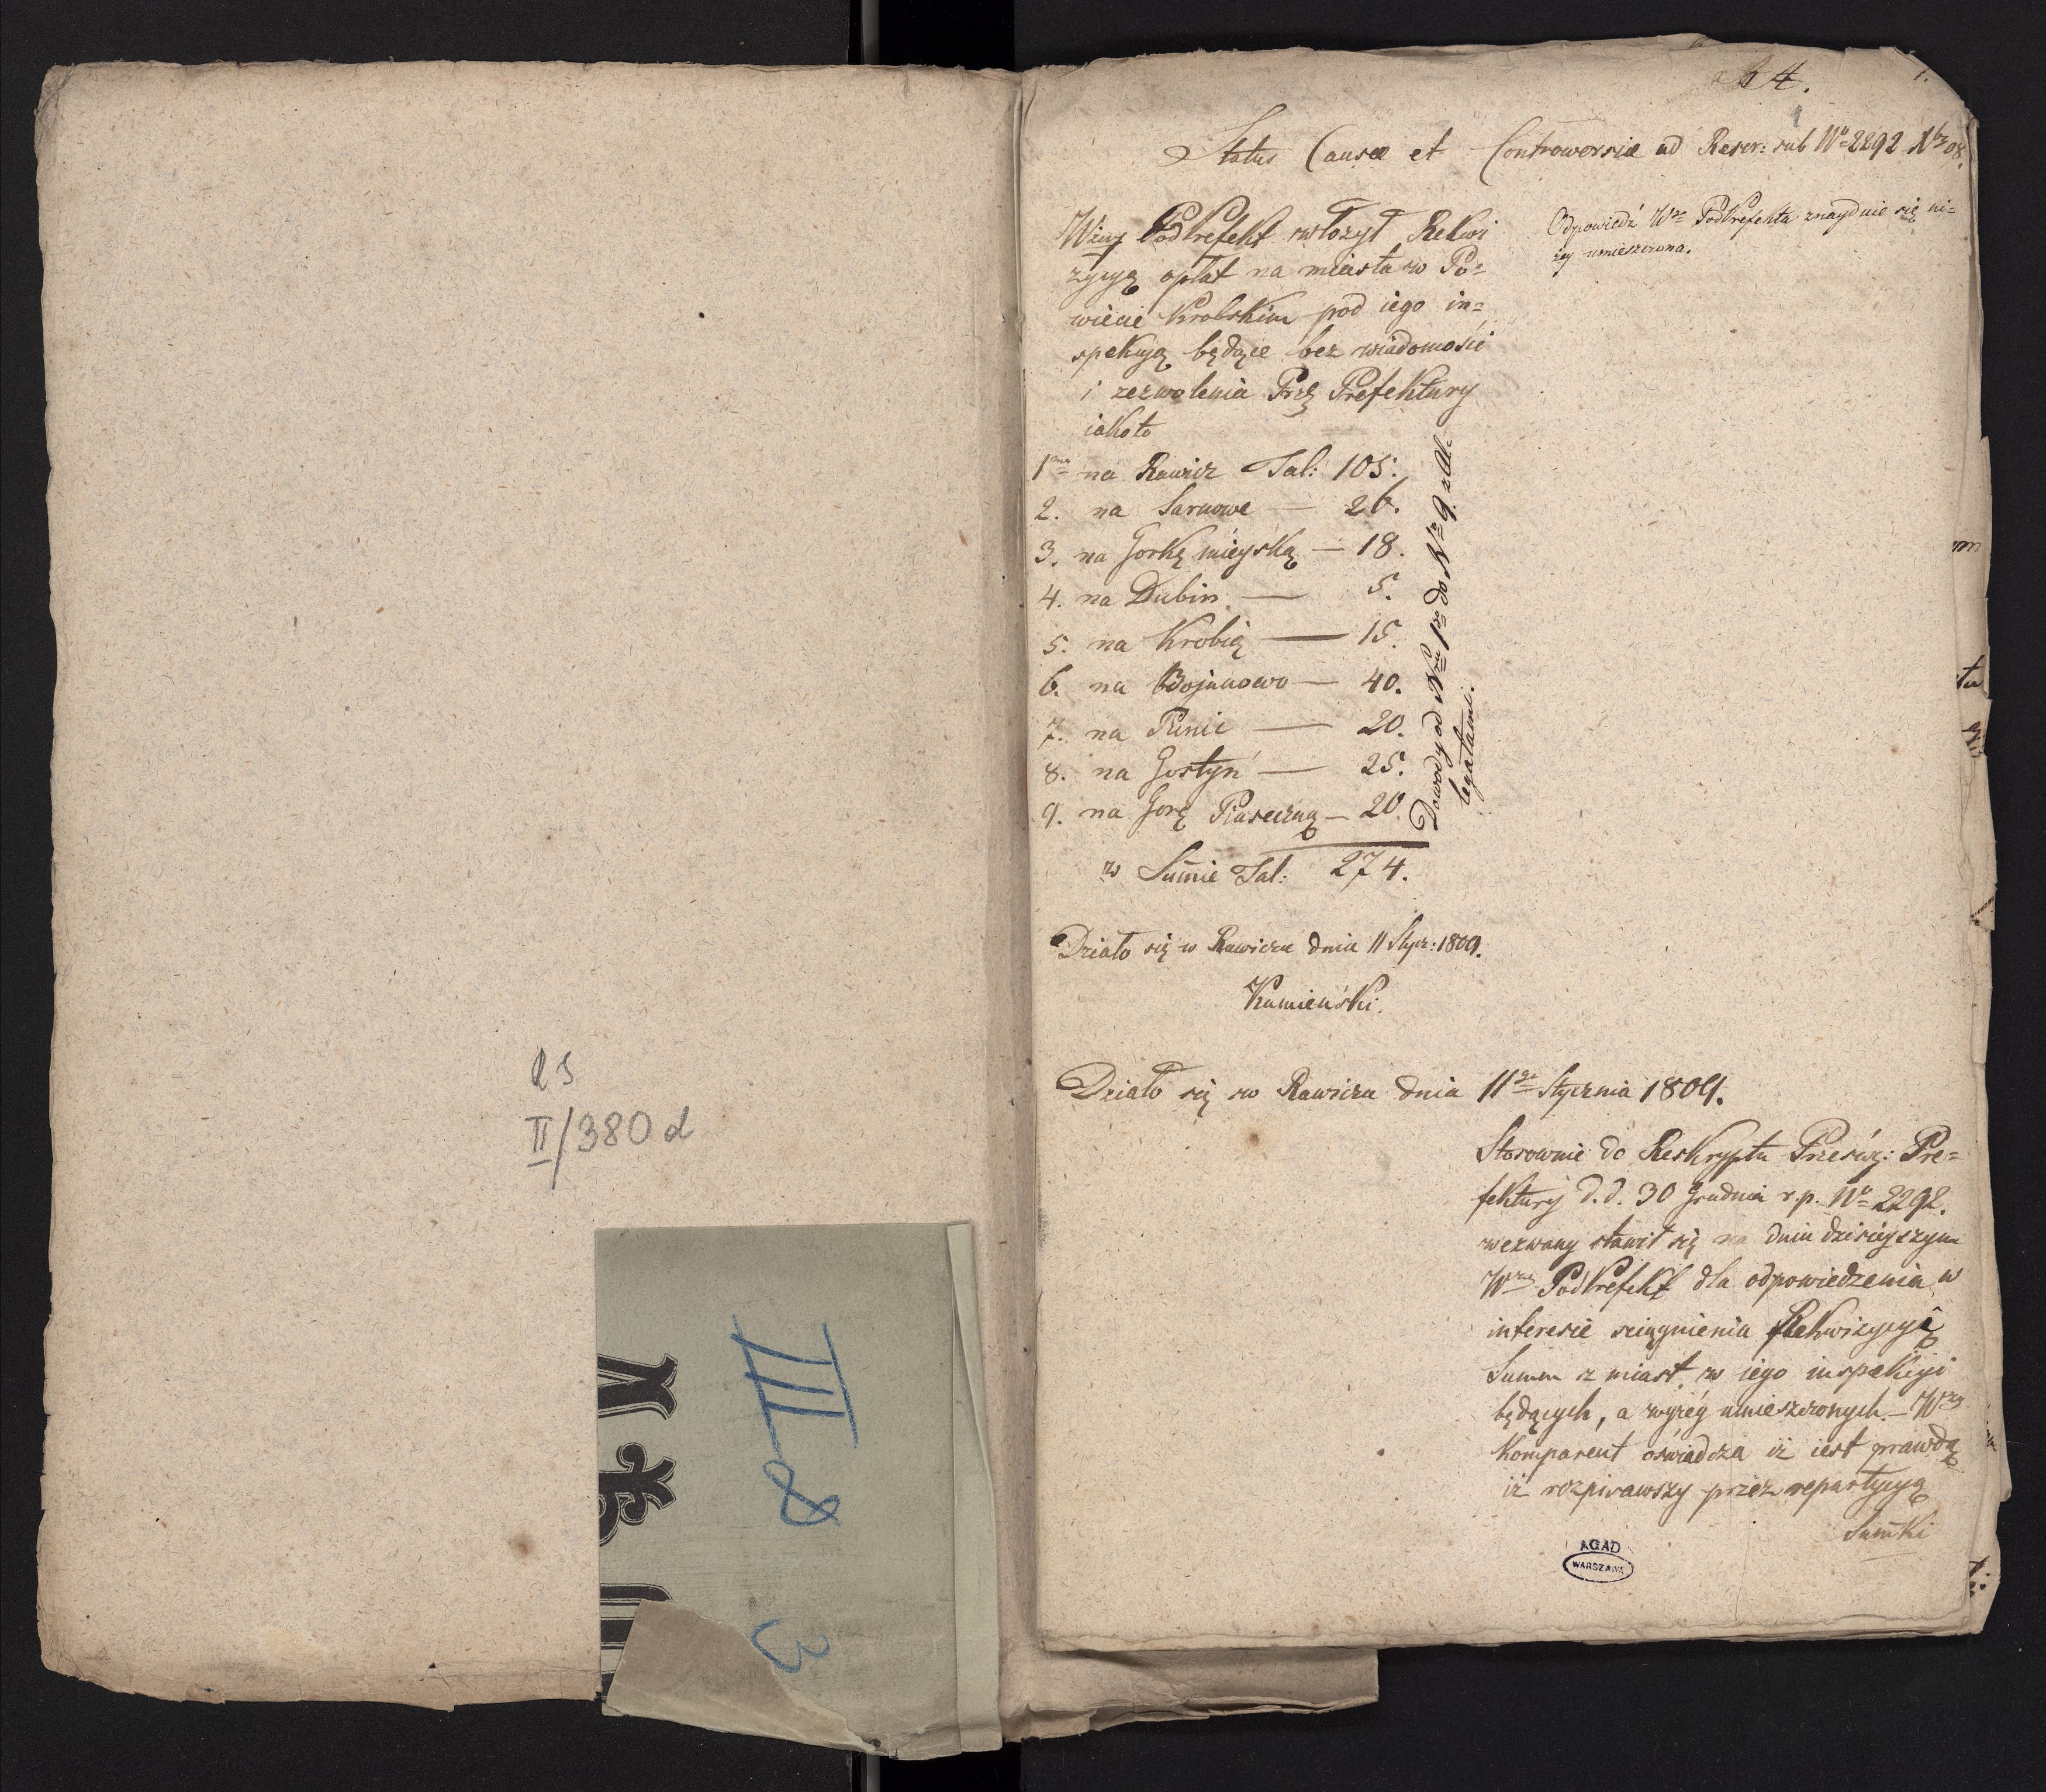 25
II/380 d
III 8
3
A 4.
1.
Status Causæ et Controwersiæ ad Rescr: sub No 2292 Xbr 08.
Wżny PodPrefekt włożył Rekwi
zycyą opłat na miasta w Po=
wiecie Krobskim pod iego in=
spekcyą będące bez wiadomości
i zezwolenia Prze Prefektury
iakoto
1mo na Rawicz Tal: 105.
2. na Sarnowe — 26.
3. na Gorkę mieyską — 18.
4. na Dubin — 5.
5. na Krobią — 15.
6. na Bojanowo — 40.
7. na Punic — 20.
8. na Gostyń — 25.
9. na Gorę Piaseczną — 20.
w Summie Tal: 274.
Dowody od Nru 1go do Nro 9. z Al-
legatami.
Działo się w Rawiczu dnia 11 Stycz: 1809.
Kamieński.
Odpowiedź Wgo PodPrefekta znayduie się ni=
żey umieszczona.
Działo się w Rawiczu dnia 11go Stycznia 1809.
Stosownie do Reskryptu Prześw: Pre=
fektury d. d. 30 Grudnia r. p. No 2292.
wezwany stawił się na dniu dzisieyszym
Wny PodPrefekt dla odpowiedzenia w
interesie sciągnienia Rekwizycyą
Summ z miast w iego inspekcyi
będących, a wyżéy umieszczonych. – Wny
Komparent oświadcza iż iest prawdą
iż rozpisawszy przez repartycyą
Summki
AGAD
WARSZAWA